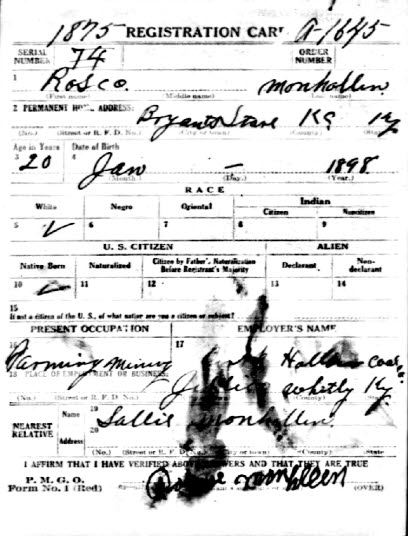 1875 REGISTRATION CARD A-1645
SERIAL NUMBER 74 ORDER NUMBER
1 Rosco Monhollen
(First name) (Middle name) (Last name)
2 PERMANENT HOME ADDRESS:
Bryants Store Ky
(No.) (Street or R. F. D. No.) (City or town) (County) (State)
Age in Years Date of Birth
3 20 4 Jan — 1898
(Month.) (Day.) (Year.)
RACE
White Negro Oriental Indian
Citizen Noncitizen
5 ✓ 6 7 8 9
U. S. CITIZEN ALIEN
Native Born Naturalized Citizen by Father's Naturalization Before Registrant's Majority Declarant Non-declarant
10 ✓ 11 12 13 14
15
If not a citizen of the U. S., of what nation are you a citizen or subject?
PRESENT OCCUPATION EMPLOYER'S NAME
16 17
Mining Coal
18 PLACE OF EMPLOYMENT OR BUSINESS:
Whitly Ky
(No.) (Street or R. F. D. No.) (County) (State)
NEAREST RELATIVE Name 19 Sallie Monhollen
Address 20
(No.) (Street or R. F. D. No.) (City or town) (County) (State)
I AFFIRM THAT I HAVE VERIFIED ABOVE ANSWERS AND THAT THEY ARE TRUE
P. M. G. O.
Form No. 1 (Red) Monhollen (OVER)